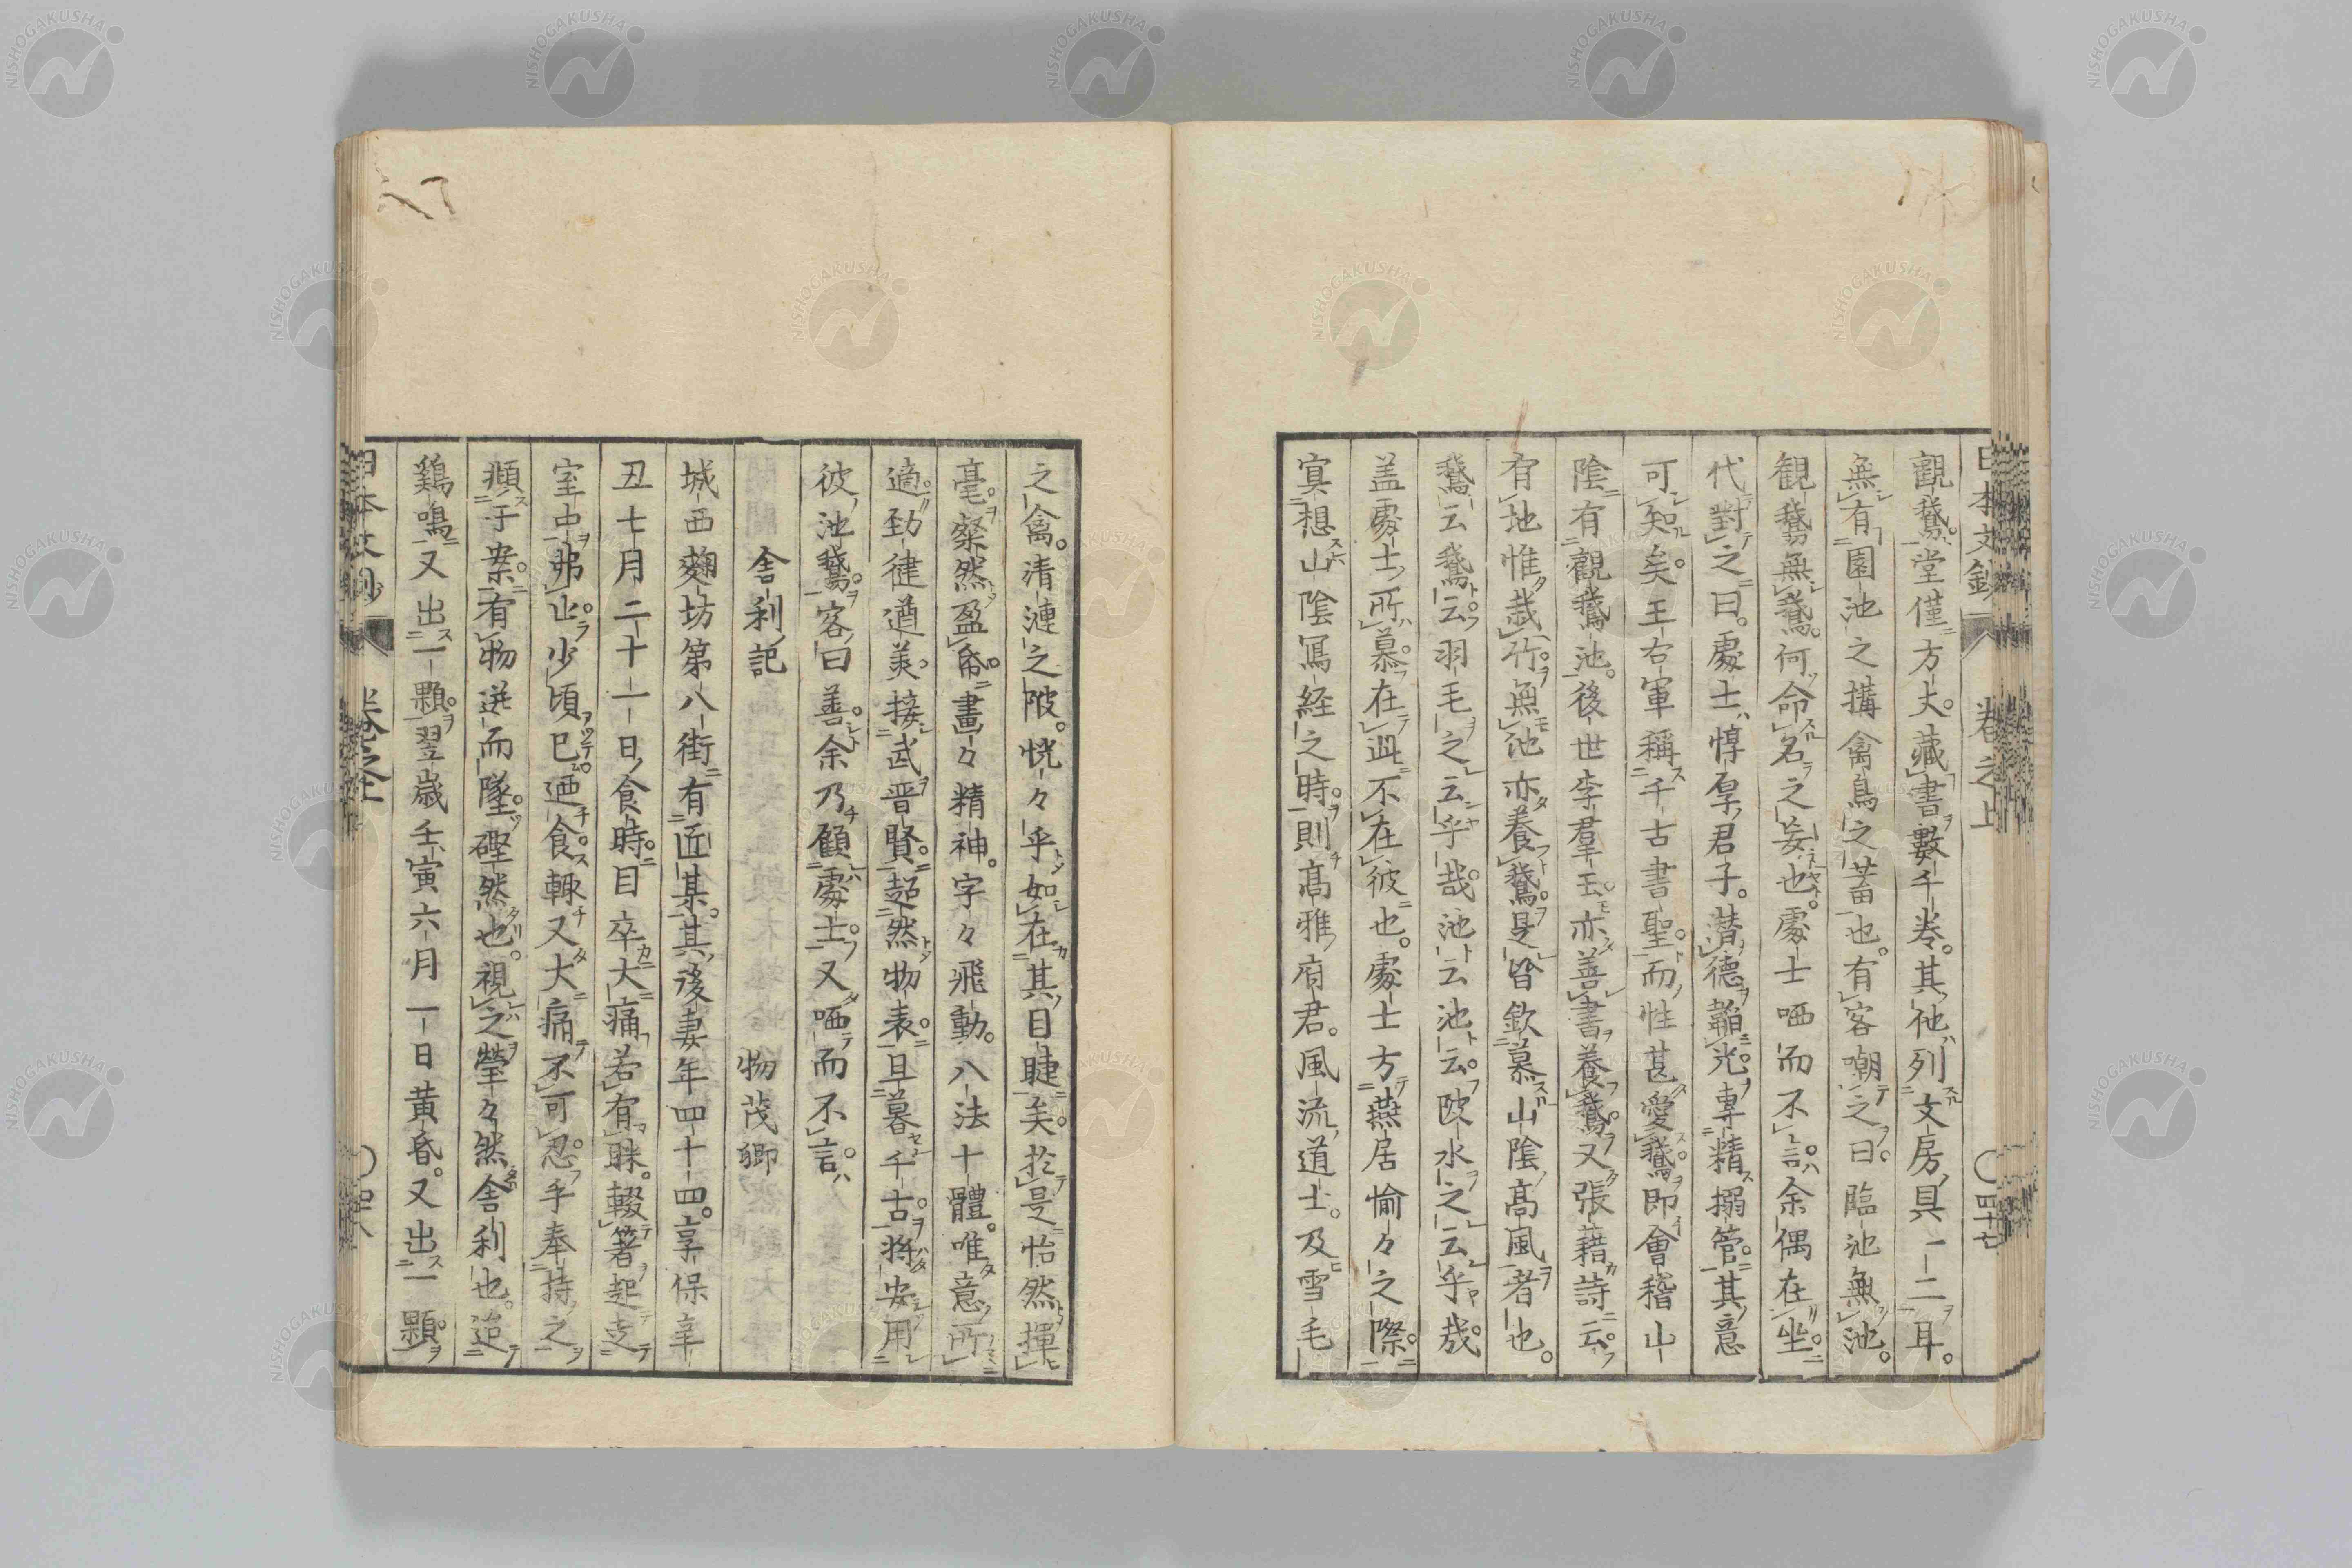 日本文鈔 卷之上 四十七
觀鵞。堂僅方丈。藏書數千卷。其他列文房具一二耳。
無有園池之搆禽鳥之畜也。有客嘲之曰。臨池無池。
観鵞無鵞。何命名之妄也。處士哂而不言。余偶在坐
代對之曰。處士惇厚君子。潜德韜光。專精搦管。其意
可知矣。王右軍稱千古書聖。而性甚愛鵞。即會稽山
陰有觀鵞池。後世李羣玉。亦善書養鵞。又張藉詩云。
有地惟栽竹。無池亦養鵞。是皆欽慕山陰高風者也。
鵞云鵞云。羽毛之云乎哉。池云池云。陂水之云乎哉。
盖處士所慕。在此不在彼也。處士方燕居愉々之際。
寞想山陰冩経之時。則髙雅府君。風流道士。及雪毛
之禽。清漣之陂。恍々乎如在其目睫矣。於是怡然揮
毫。粲然盈帋。畫々精神。字々飛動。八法十體。唯意所
適。勁健遒美。接武晋賢。超然物表。旦暮千古。將安用
彼池鵞。客曰善。余乃顧處士。又哂而不言。
舎利記 物茂卿
城西麴坊第八街有匠某。其後妻年四十四。享保辛
丑七月二十一日食時。目卒大痛。若有眯。輟箸起走
室中弗止。少頃已。迺食。輙又大痛不可忍。手奉持之
頫于案。有物迸而墜。硜然也。視之瑩々然舎利也。迨
鷄鳴又出一顆。翌歳壬寅六月一日黃昏。又出一顆。